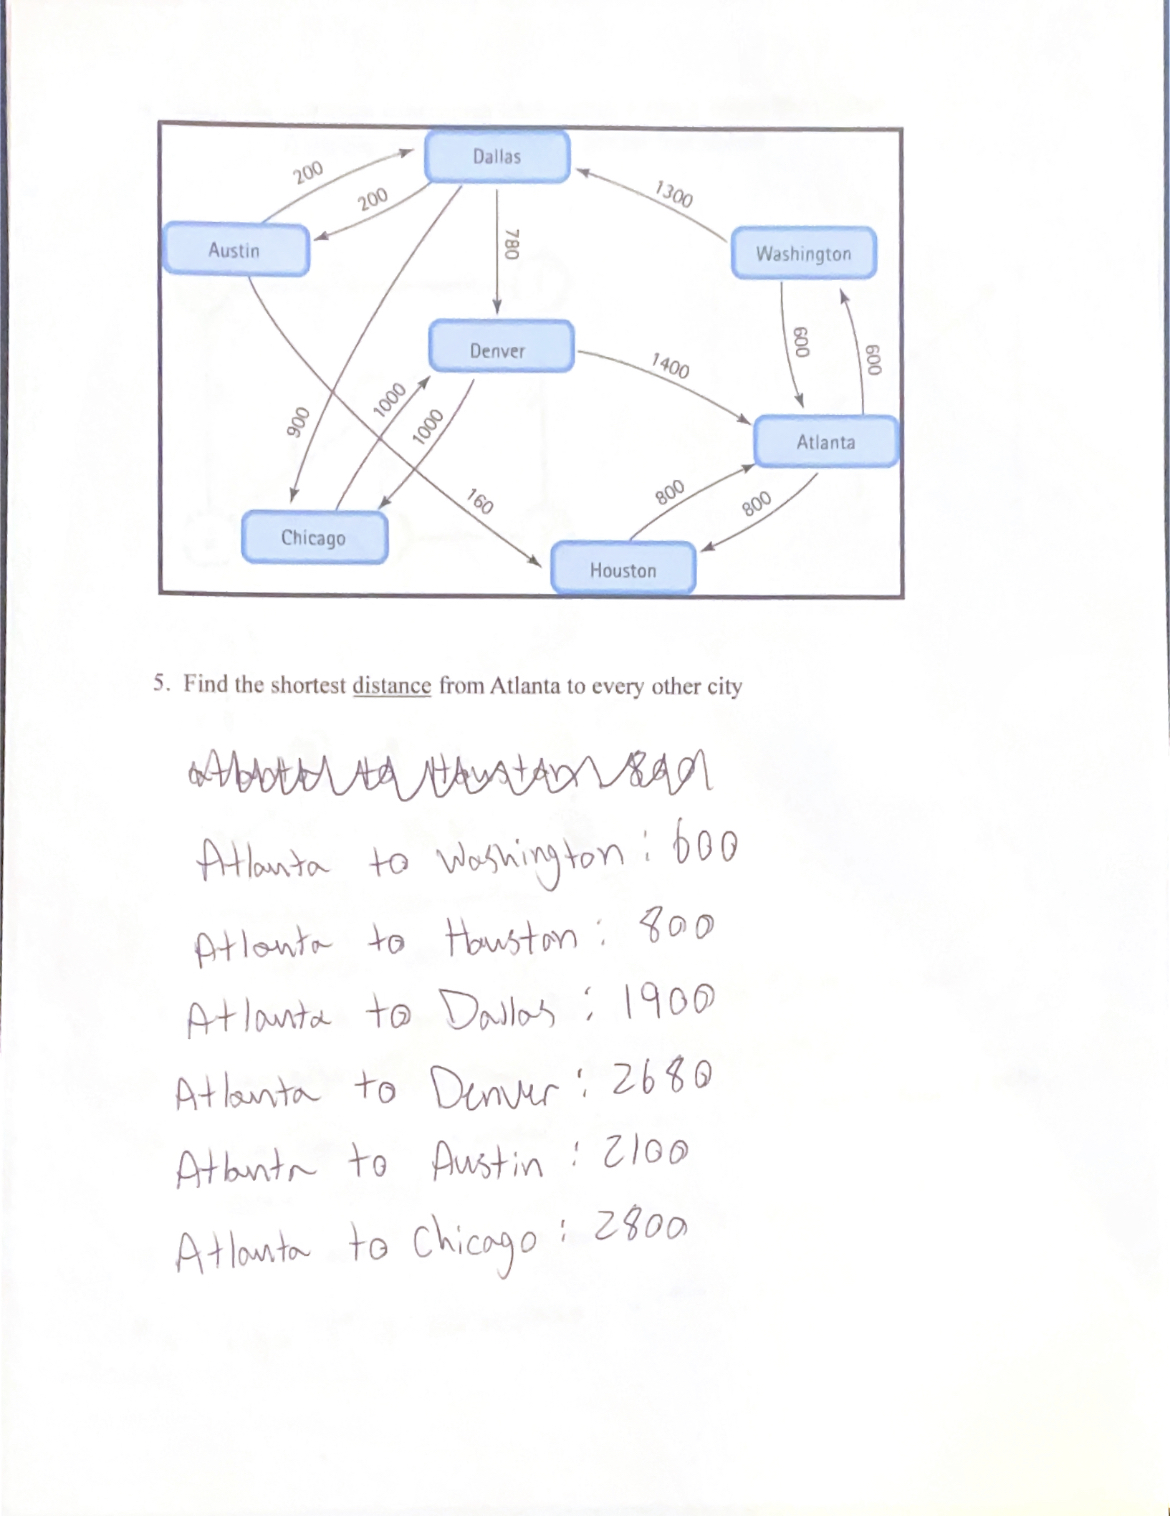 Dallas
200
200
1300
Austin
780
Washington
Denver
1400
600
600
900
1000
1000
Atlanta
160
800
800
Chicago
Houston
5. Find the shortest distance from Atlanta to every other city
Atlanta to Washington : 600
Atlanta to Houston : 800
Atlanta to Dallas : 1900
Atlanta to Denver : 2680
Atlanta to Austin : 2100
Atlanta to Chicago : 2800